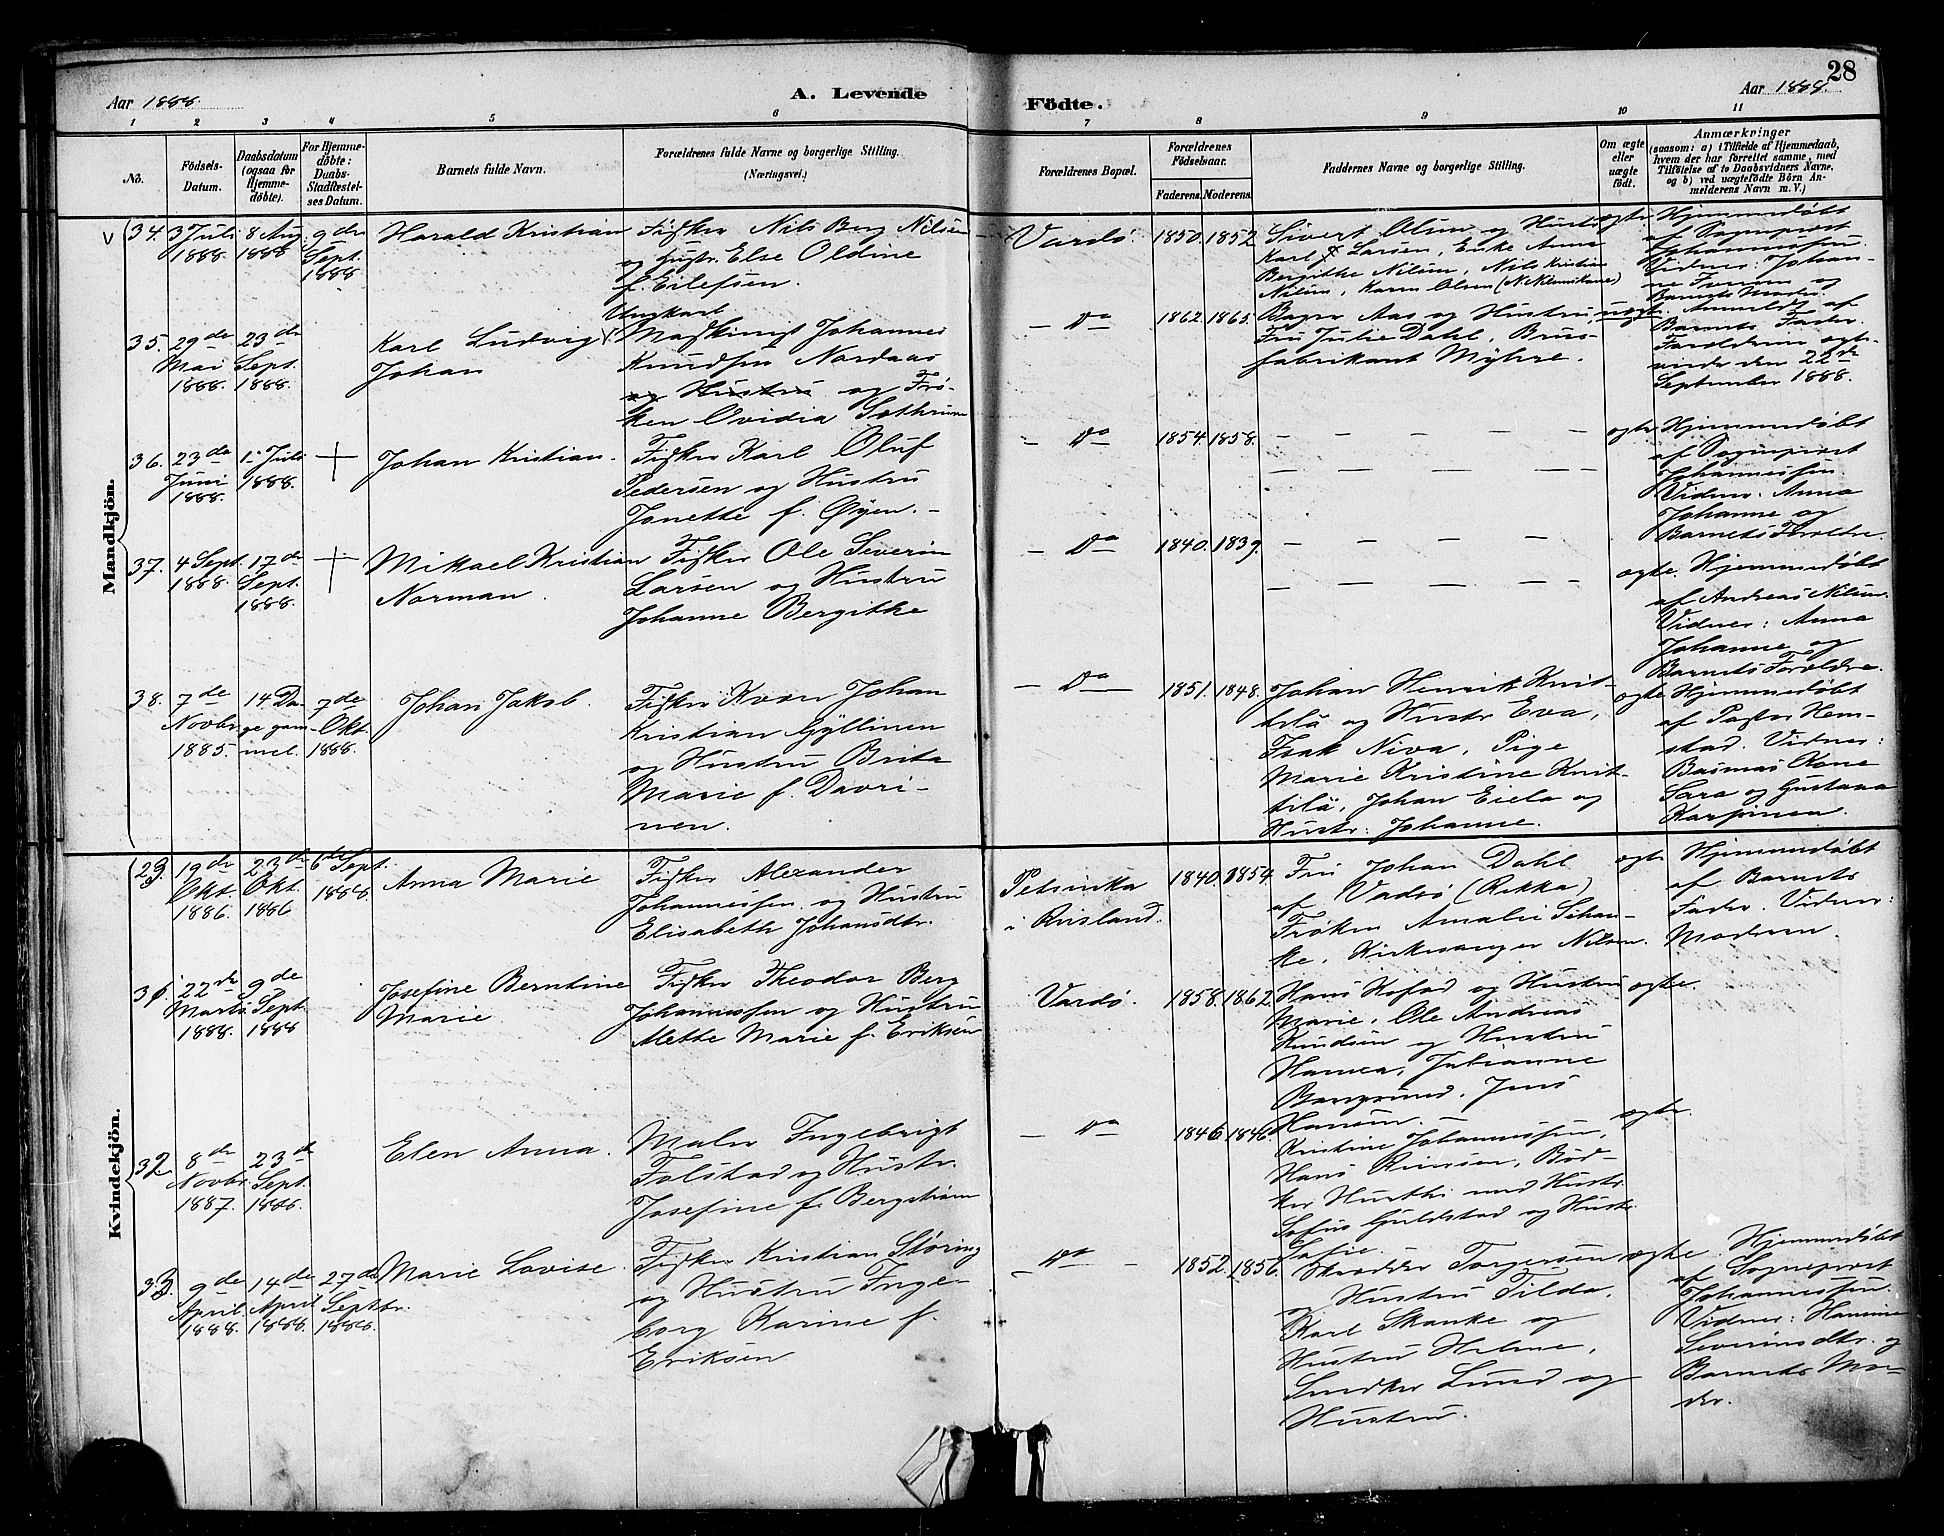 28
Aar 1888.
A. Levende Födte.
Aar 1888.
1 2 3 4 5 6 7 8 9 10 11
No.
Födsels-
Datum.
Daabsdatum
(ogsaa for
Hjemme-
døbte).
For Hjemme-
døbte:
Daabs-
Stadfæstel-
ses Datum.
Barnets fulde Navn.
Forældrenes fulde Navne og borgerlige Stilling.
(Næringsvei.)
Forældrenes Bopæl.
Forældrenes
Födselsaar.
Faderens. Moderens.
Faddernes Navne og borgerlige Stilling.
Om ægte
eller
uægte
født.
Anmærkninger
(saasom: a) i Tilfælde af Hjemmedaab,
hvem der har forrettet samme, med
Tilföielse af to Daabsvidners Navne,
og b) ved uægtefödte Börn An-
melderens Navn m. V.)
Mandkjön.
34.
3 Juli
1888.
8 Aug
1888
9de
Sept.
1888
Harald Kristian
Fisker Nils Berg Nilsen
og Hustr. Else Oldine
f. Eilefsen.
Vardö.
1850. 1852.
Sivert Olsen og Hustr
Karl Larsen, Enke Anna
Bergithe Nilsen, Nils Kristian
Nilsen, Karen Olsen
ægte
Hjemmedøbt
af Sogneprest
Johannessen.
Vidner: Johan-
ne Jensen og
Barnets Moder.
35.
29de
Mai
1888.
23de
Sept.
1888.
Karl Ludvig
Johan
Ungkarl
Maskinist Johannes
Knudsen Nordaas
og Hustru og Frø-
ken Ovidia Sathrum
— Do
1862. 1865.
Bager Aas og Hustru,
Fru Julie Dahl, Brus-
fabrikant Myhre.
uægte.
Anmeldt af
Barnets Fader.
Forældrene ægte-
viede den 22de
September 1888.
36.
23de
Juni
1888.
1. Juli
1888.
+
Johan Kristian.
Fisker Karl Oluf
Pedersen og Hustru
Jonette f. Øyen. -
— Do
1854. 1858.
— — — — —
— — — — —
ægte
Hjemmedøbt
af Sogneprest
Johannessen
Vidner: Anna
Johanne og
Barnets Forældre.
37.
4 Sept.
1888.
17de
Sept.
1888.
+
Mikael Kristian
Norman.
Fisker Ole Severin
Larsen og Hustru
Johanne Bergithe
— Do
1840. 1839.
— — — — —
— — — — —
ægte.
Hjemmedøbt
af Andreas Nilsen.
Vidner: Anna
Johanne og
Barnets Forældre.
38.
7de
Novbr.
1885.
14 Da-
ge gam-
mel.
7de
Okt.
1888.
Johan Jakob.
Fisker Kvæn Johan
Kristian Gyllinen
og Hustru Brita
Marie f. Davri-
nen.
— Do —
1851. 1848.
Johan Henrik Knit-
tilä og Hustr Eva,
Isak Niva, Pige
Marie Kristine Knit-
tilä, Johan Eiela og
Hustr. Johanne.
ægte
Hjemmedøbt
af Pastor Hem-
stad. Vidner:
Basmas Kone
Sara og Gustava
Karjinen.
Kvindekjön.
29.
19de
Okt.
1886.
23de
Okt.
1886
6te Sept.
1888.
Anna Marie
Fisker Alexander
Johannessen og Hustru
Elisabeth Johansdtr.
Petsinka
i Rusland.
1840. 1854
Fru Johan Dahl
af Vadsö (Rikka)
Frøken Amalie Schan-
ke, Kirkesanger Nilsen.
ægte
Hjemmedøbt
af Barnets
Fader. Vidner:
Moderen.
31.
22de
Marts
1888.
9de
Sept.
1888
Josefine Berntine
Marie
Fisker Theodor Berg
Johannessen og Hustru
Mette Marie f. Eriksen
Vardö.
1858. 1862.
Hans Kofod og Hustru
Marie, Ole Andreas
Knudsen og Hustru
Hanna, Julianne
Bangsund, Jens
Hansen. —
ægte.
32.
8de
Novbr.
1887.
23de
Sept.
1888.
Elen Anna.
Maler Ingebrigt
Folstad og Hustr.
Josefine f. Bergstrøm
— Do
1846 1846.
Kristine Johannessen,
Hans Riinsen, Bød-
ker Hurthi med Hustr.
Sofus Guldstad og Hustr
Sofie.
ægte.
33.
9de
April
1888.
14de
April
1888.
27de
Septbr.
1888.
Marie Lovise.
Fisker Kristian Støring
og Hustru Inge-
borg Karine f.
Eriksen
— Do —
1852. 1856.
Skrædder Torgersen
og Hustru Tilda,
Karl Skanke og
Hustru Helene,
Snedker Lund og
Hustru.
ægte.
Hjemmedøbt
af Sogneprest
Johannessen.
Vidner: Hanna
Severinsdtr. og
Barnets Mo-
der.